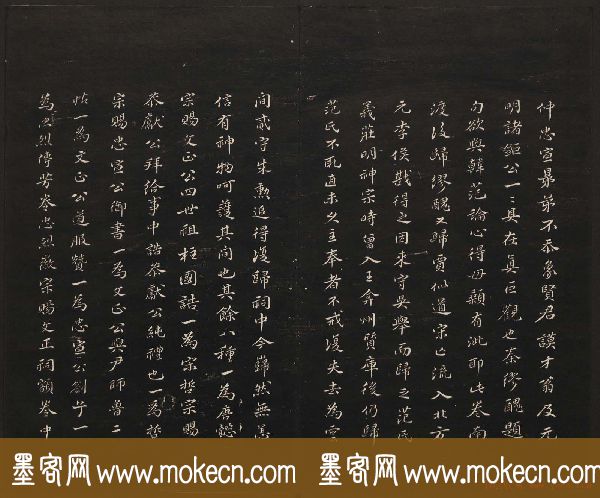 仲忠宣暴弟不忝象賢君謨才翁及元
明諸鉅公一一具在真巨觀也秦繆醜題
向欲與韓范論心得毋顏有泚耶此卷南
渡後歸繆醜又歸賈似道宋亡流入北方
元李侯戡得之因來守吳舉而歸之范氏
義莊明神宗時曾入王弇州質庫後仍歸
范氏不戒直未久主奉者不戒復失去為雲
間貳守朱勳追得復歸祠中今巋然無恙
信有神物呵護其間也其餘八種一為唐懿
宗賜文正公四世祖柱國誥一為宋哲宗賜
恭獻公拜給事中誥恭獻公純禮也一為哲
宗賜忠宣公御書一為文正公與尹師魯二
帖一為文正公道服贊一為忠宣公劄子一
為忠烈傳芳卷忠烈徽宗賜文正祠額卷中
墨客网 www.mokecn.com 墨客网 www.mokecn.com